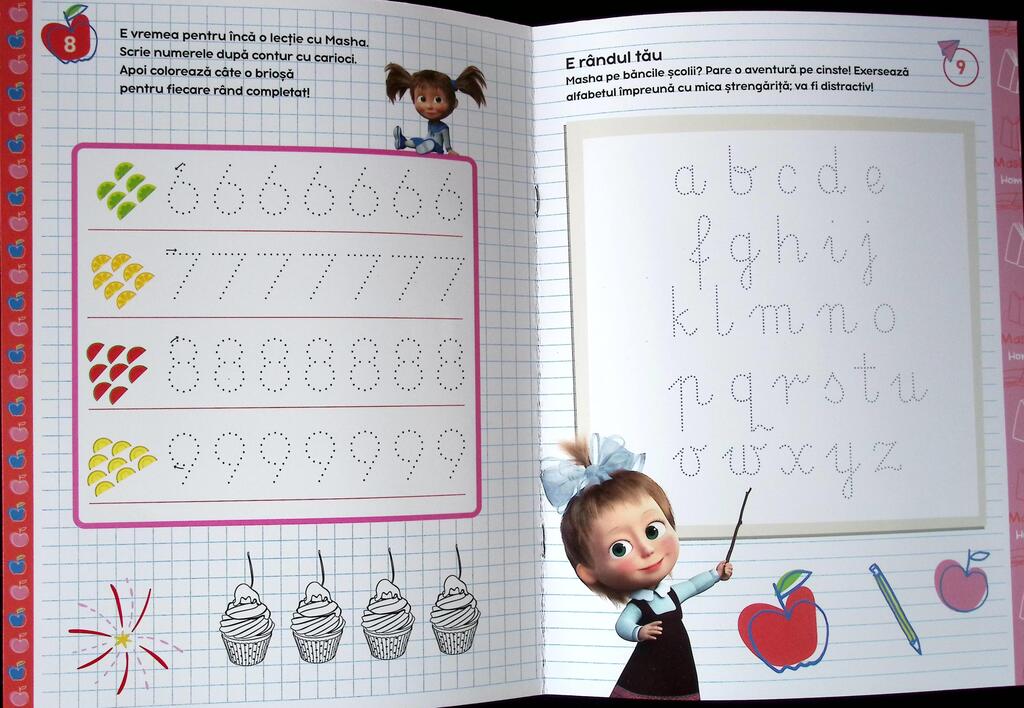 8
E vremea pentru încă o lecție cu Masha.
Scrie numerele după contur cu carioci.
Apoi colorează câte o brioșă
pentru fiecare rând completat!
6 6 6 6 6 6 6
7 7 7 7 7 7 7
8 8 8 8 8 8 8
9 9 9 9 9 9 9
E rândul tău
9
Masha pe băncile școlii? Pare o aventură pe cinste! Exersează
alfabetul împreună cu mica ștrengăriță; va fi distractiv!
a b c d e
f g h i j
k l m n o
p q r s t u
v w x y z